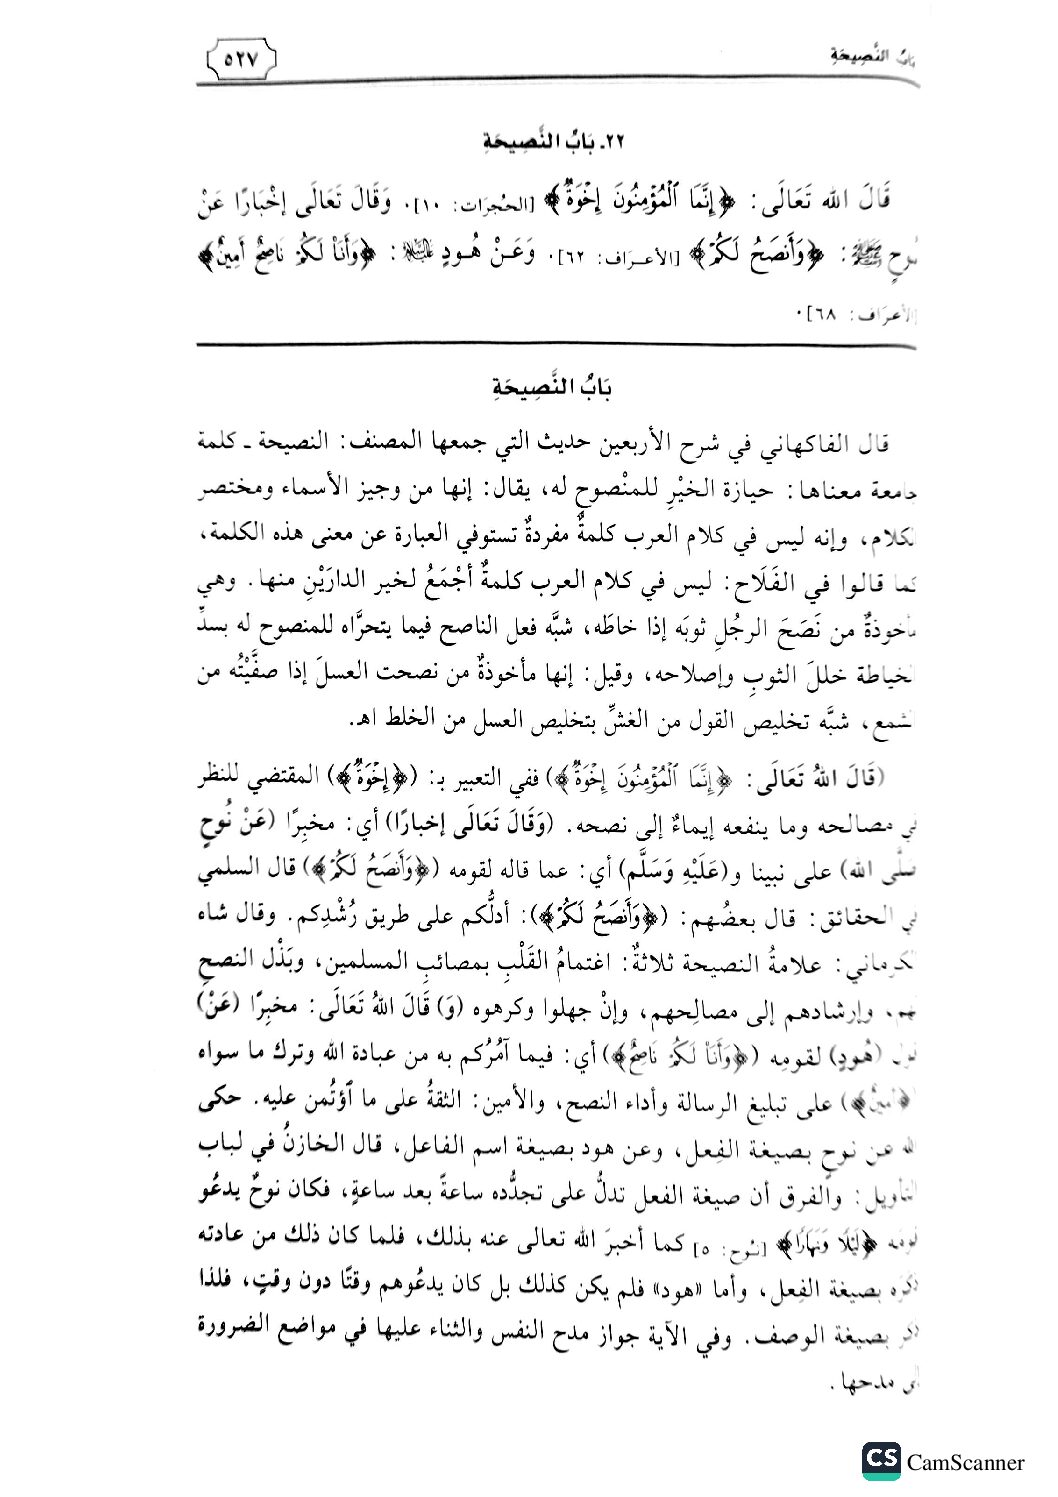 باب النَّصِيحَةِ
٥٢٧
٢٢ـ بَابُ النَّصِيحَةِ
قَالَ الله تَعَالَى: ﴿إِنَّمَا ٱلْمُؤْمِنُونَ إِخْوَةٌ﴾ [الحُجرَات: ١٠]. وَقَالَ تَعَالَى إخْبَارًا عَنْ
نُوحٍ ﷺ: ﴿وَأَنصَحُ لَكُمْ﴾ [الأعـرَاف: ٦٢]. وَعَـنْ هُـودٍ ﷺ: ﴿وَأَنَا۠ لَكُمْ نَاصِحٌ أَمِينٌ﴾
[الأعرَاف: ٦٨].
بَابُ النَّصِيحَةِ
قال الفاكهاني في شرح الأربعين حديث التي جمعها المصنف: النصيحة ـ كلمة
جامعة معناها: حيازة الخيْرِ للمنْصوحِ له، يقال: إنها من وجيز الأسماء ومختصر
الكلام، وإنه ليس في كلام العرب كلمةٌ مفردةٌ تستوفي العبارة عن معنى هذه الكلمة،
كما قالوا في الفَلَاح: ليس في كلام العرب كلمةٌ أجْمَعُ لخير الدارَيْنِ منها. وهي
مأخوذةٌ من نَصَحَ الرجُلِ ثوبَه إذا خاطَه، شبَّه فعل الناصح فيما يتحرَّاه للمنصوح له بسدِّ
الخياطة خللَ الثوبِ وإصلاحه، وقيل: إنها مأخوذةٌ من نصحت العسلَ إذا صفَّيْتُه من
الشمع، شبَّه تخليص القول من الغشِّ بتخليص العسل من الخلط اهـ.
(قَالَ اللهُ تَعَالَى: ﴿إِنَّمَا ٱلْمُؤْمِنُونَ إِخْوَةٌ﴾) ففي التعبير بـ: (﴿إِخْوَةٌ﴾) المقتضي للنظر
في مصالحه وما ينفعه إيماءٌ إلى نصحه. (وَقَالَ تَعَالَى إخبارًا) أي: مخبِرًا (عَنْ نُوحٍ
صَلَّى الله) على نبينا و(عَلَيْهِ وَسَلَّم) أي: عما قاله لقومه (﴿وَأَنصَحُ لَكُمْ﴾) قال السلمي
في الحقائق: قال بعضُهم: (﴿وَأَنصَحُ لَكُمْ﴾): أدلُّكم على طريق رُشْدِكم. وقال شاه
الكرماني: علامةُ النصيحة ثلاثةٌ: اغتمامُ القَلْبِ بمصائبِ المسلمين، وبَذْل النصحِ
لهم، وإرشادهم إلى مصالِحهم، وإنْ جهلوا وكرهوه (وَ) قَالَ اللهُ تَعَالَى: مخبِرًا (عَنْ)
قول (هُودٍ) لقومِه (﴿وَأَنَا۠ لَكُمْ نَاصِحٌ﴾) أي: فيما آمُرُكم به من عبادة الله وترك ما سواه
(﴿أَمِينٌ﴾) على تبليغ الرسالة وأداء النصح، والأمين: الثقةُ على ما ٱؤتُمن عليه. حكى
الله عن نوحٍ بصيغة الفِعل، وعن هود بصيغة اسم الفاعل، قال الخازنُ في لباب
التأويل: والفرق أن صيغة الفعل تدلُّ على تجدُّده ساعةً بعد ساعةٍ، فكان نوحٌ يدعُو
قومه ﴿لَيْلًا وَنَهَارًا﴾ [نُوح: ٥] كما أخبرَ الله تعالى عنه بذلك، فلما كان ذلك من عادته
ذكَرَه بصيغة الفِعل، وأما «هود» فلم يكن كذلك بل كان يدعُوهم وقتًا دون وقتٍ، فلذا
ذكر بصيغة الوصف. وفي الآية جواز مدح النفس والثناء عليها في مواضع الضرورة
إلى مدحها.
CS CamScanner